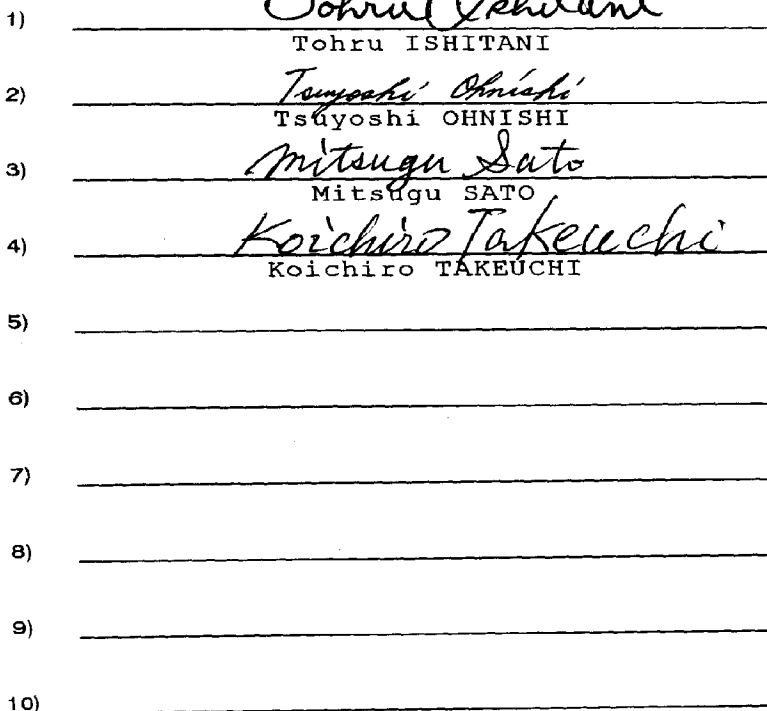 1) Tohru Ishitani
Tohru ISHITANI
2) Tsuyoshi Ohnishi
Tsuyoshi OHNISHI
3) Mitsugu Sato
Mitsugu SATO
4) Koichiro Takeuchi
Koichiro TAKEUCHI
5)
6)
7)
8)
9)
10)